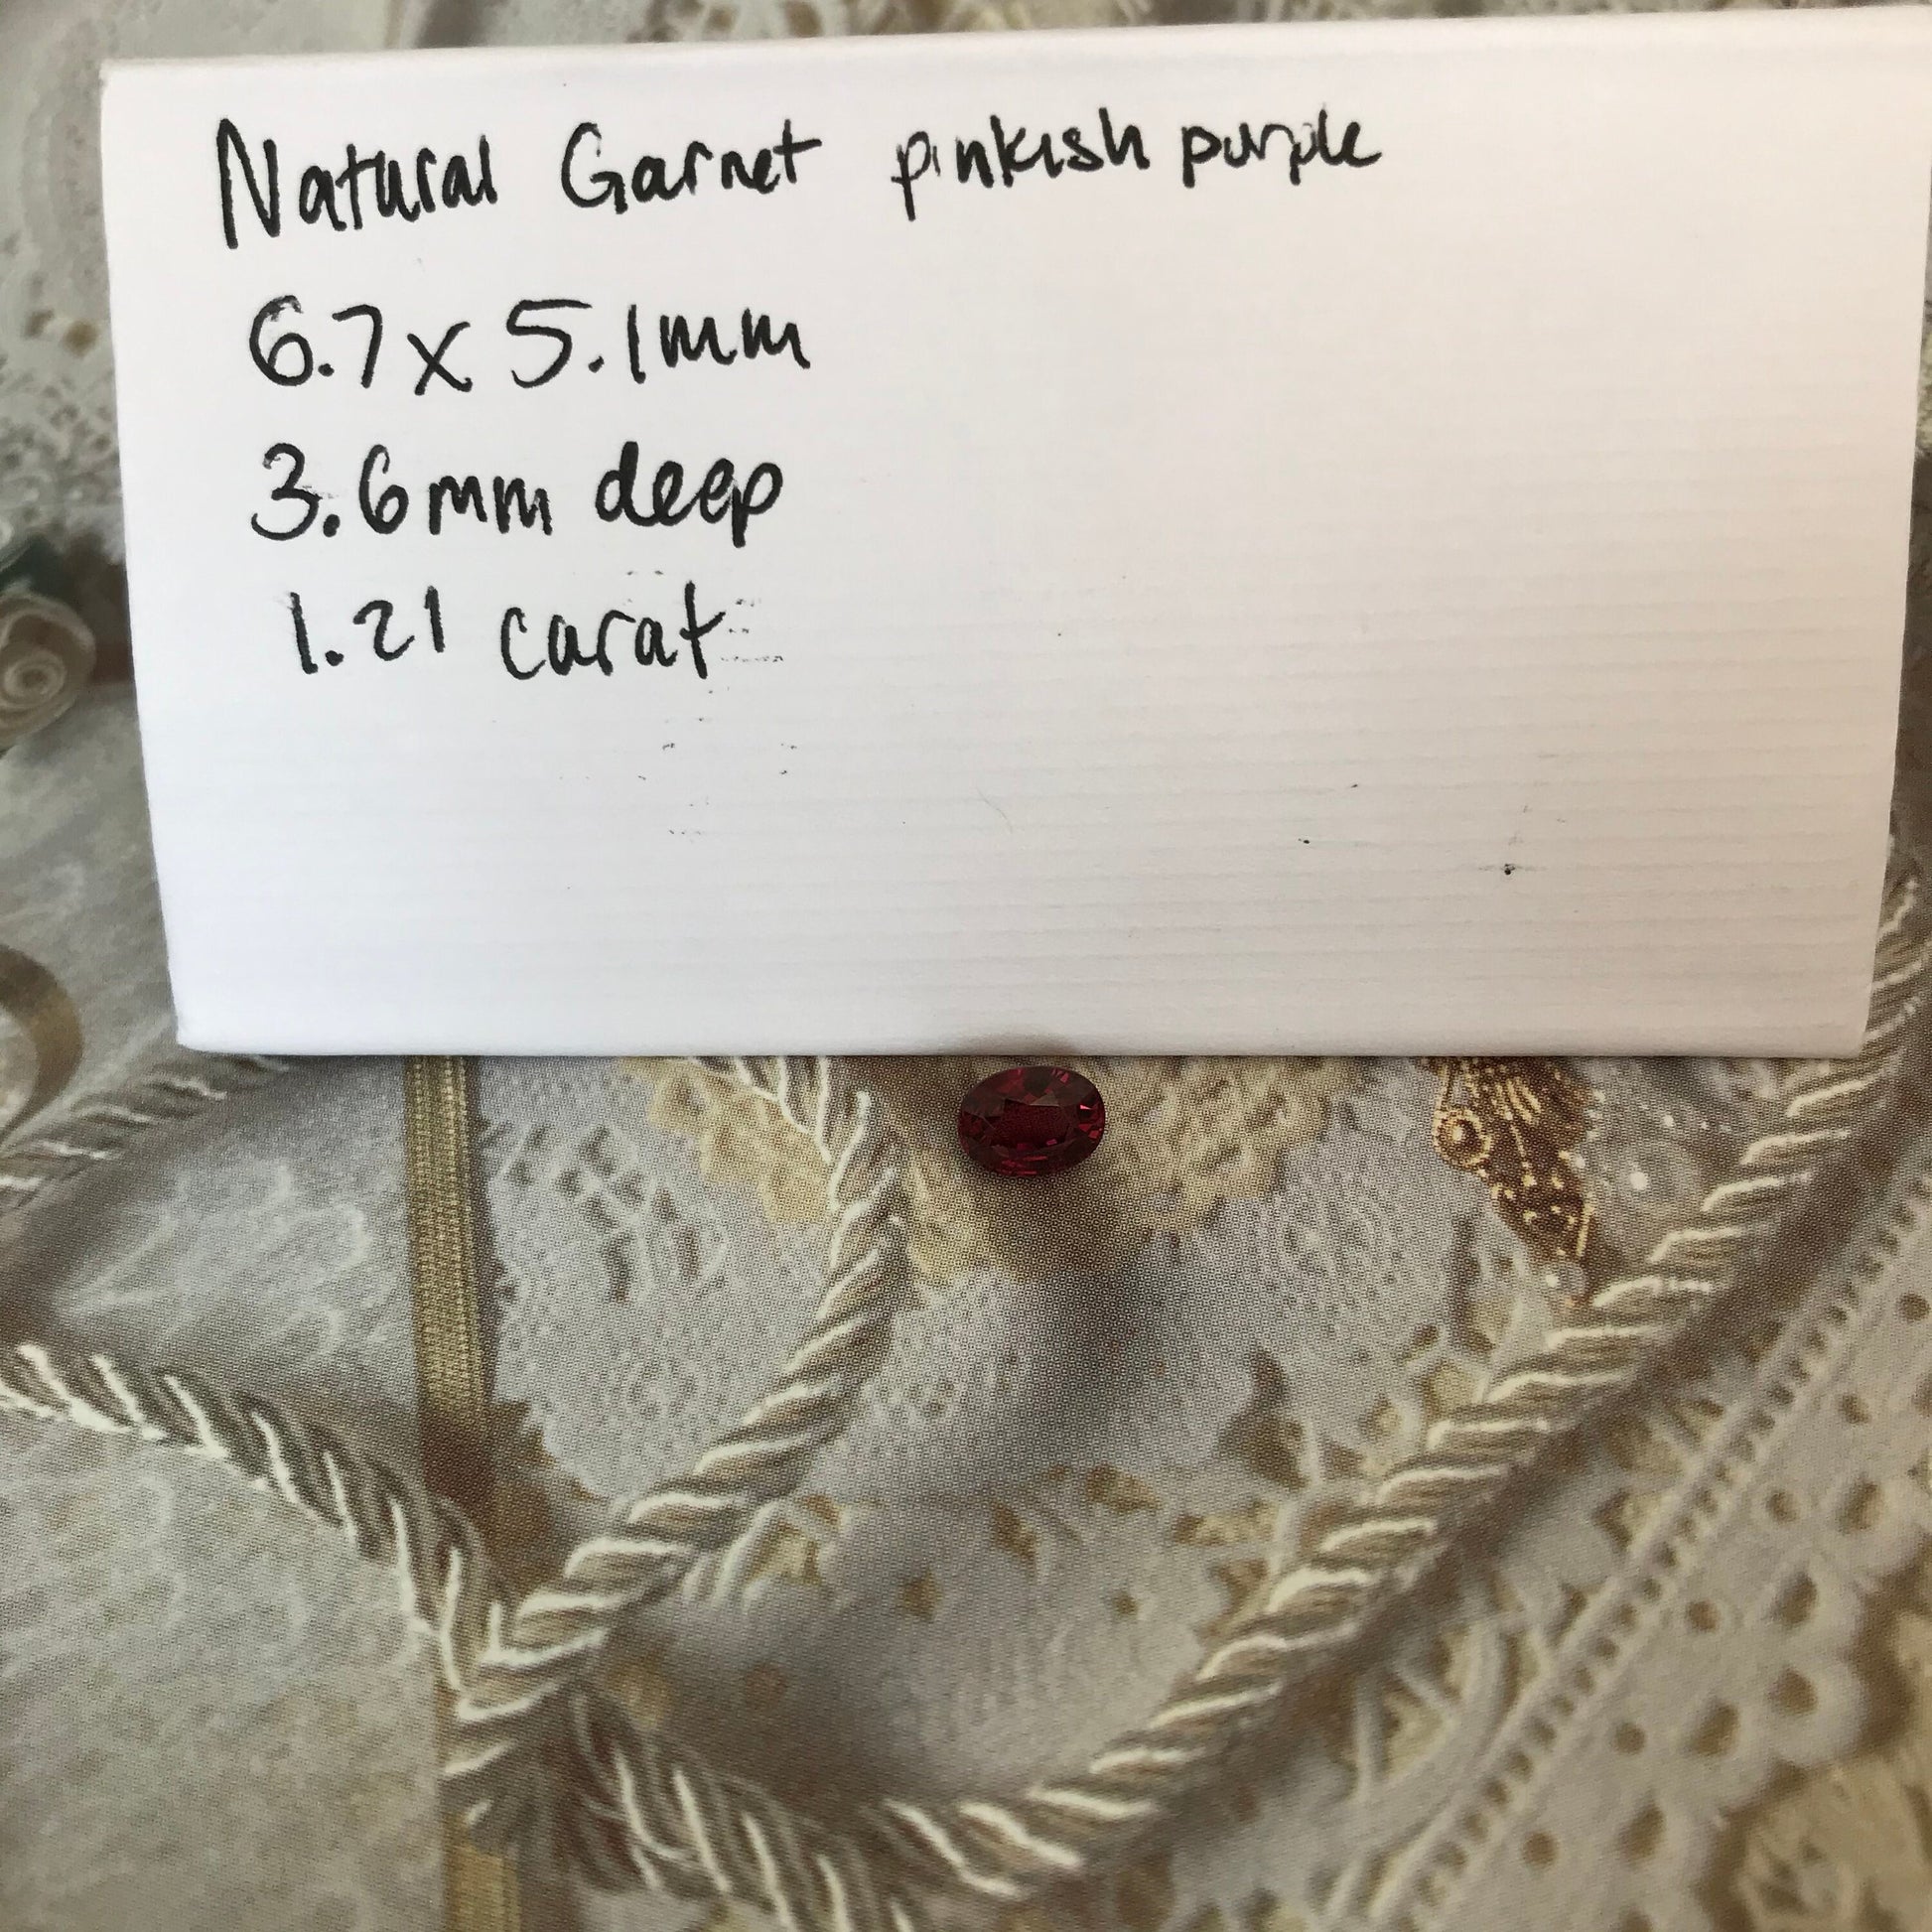 Natural Garnet pinkish purple
6.7 x 5.1mm
3.6mm deep
1.21 carat